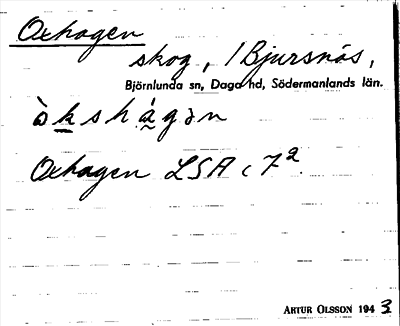 Oxhagen
skog, / Bjursnäs,
Björnlunda sn, Daga hd, Södermanlands län.
ò k s h á g ə n
Oxhagen LSA c 7²
ARTUR OLSSON 1943